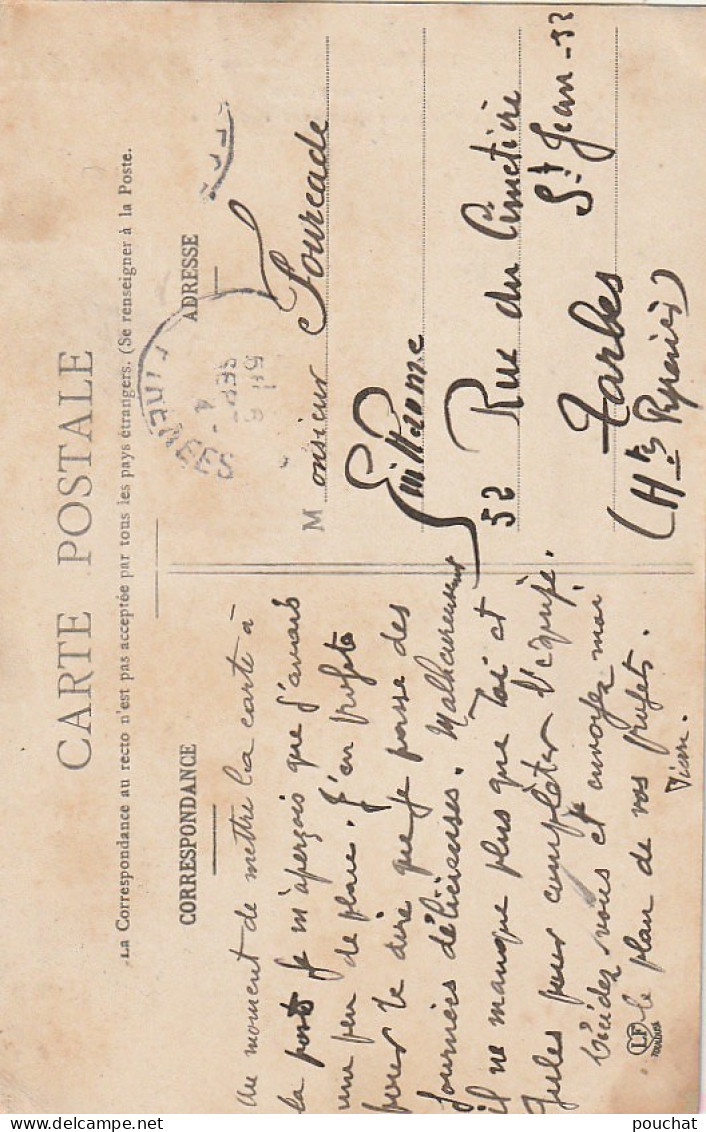 CARTE POSTALE
La Correspondance au recto n'est pas acceptée par tous les pays étrangers. (Se renseigner à la Poste.
CORRESPONDANCE
au moment de mettre la carte à
la poste je m'aperçois que j'aurais
une peu de place. J'en profite
pour te dire que je passe des
journées délicieuses. Malheureusement
il ne manque plus que toi et
Jules pour compléter l'équipe.
Décidez vous et envoyez moi
le plan de vos projets.
LF
ADRESSE
PYRENEES
SEPT
Monsieur Fourcade
Guillaume
52 Rue du Cimetière
St Jean - 52
Tarbes
(Htes Pyrénées)
pouchat